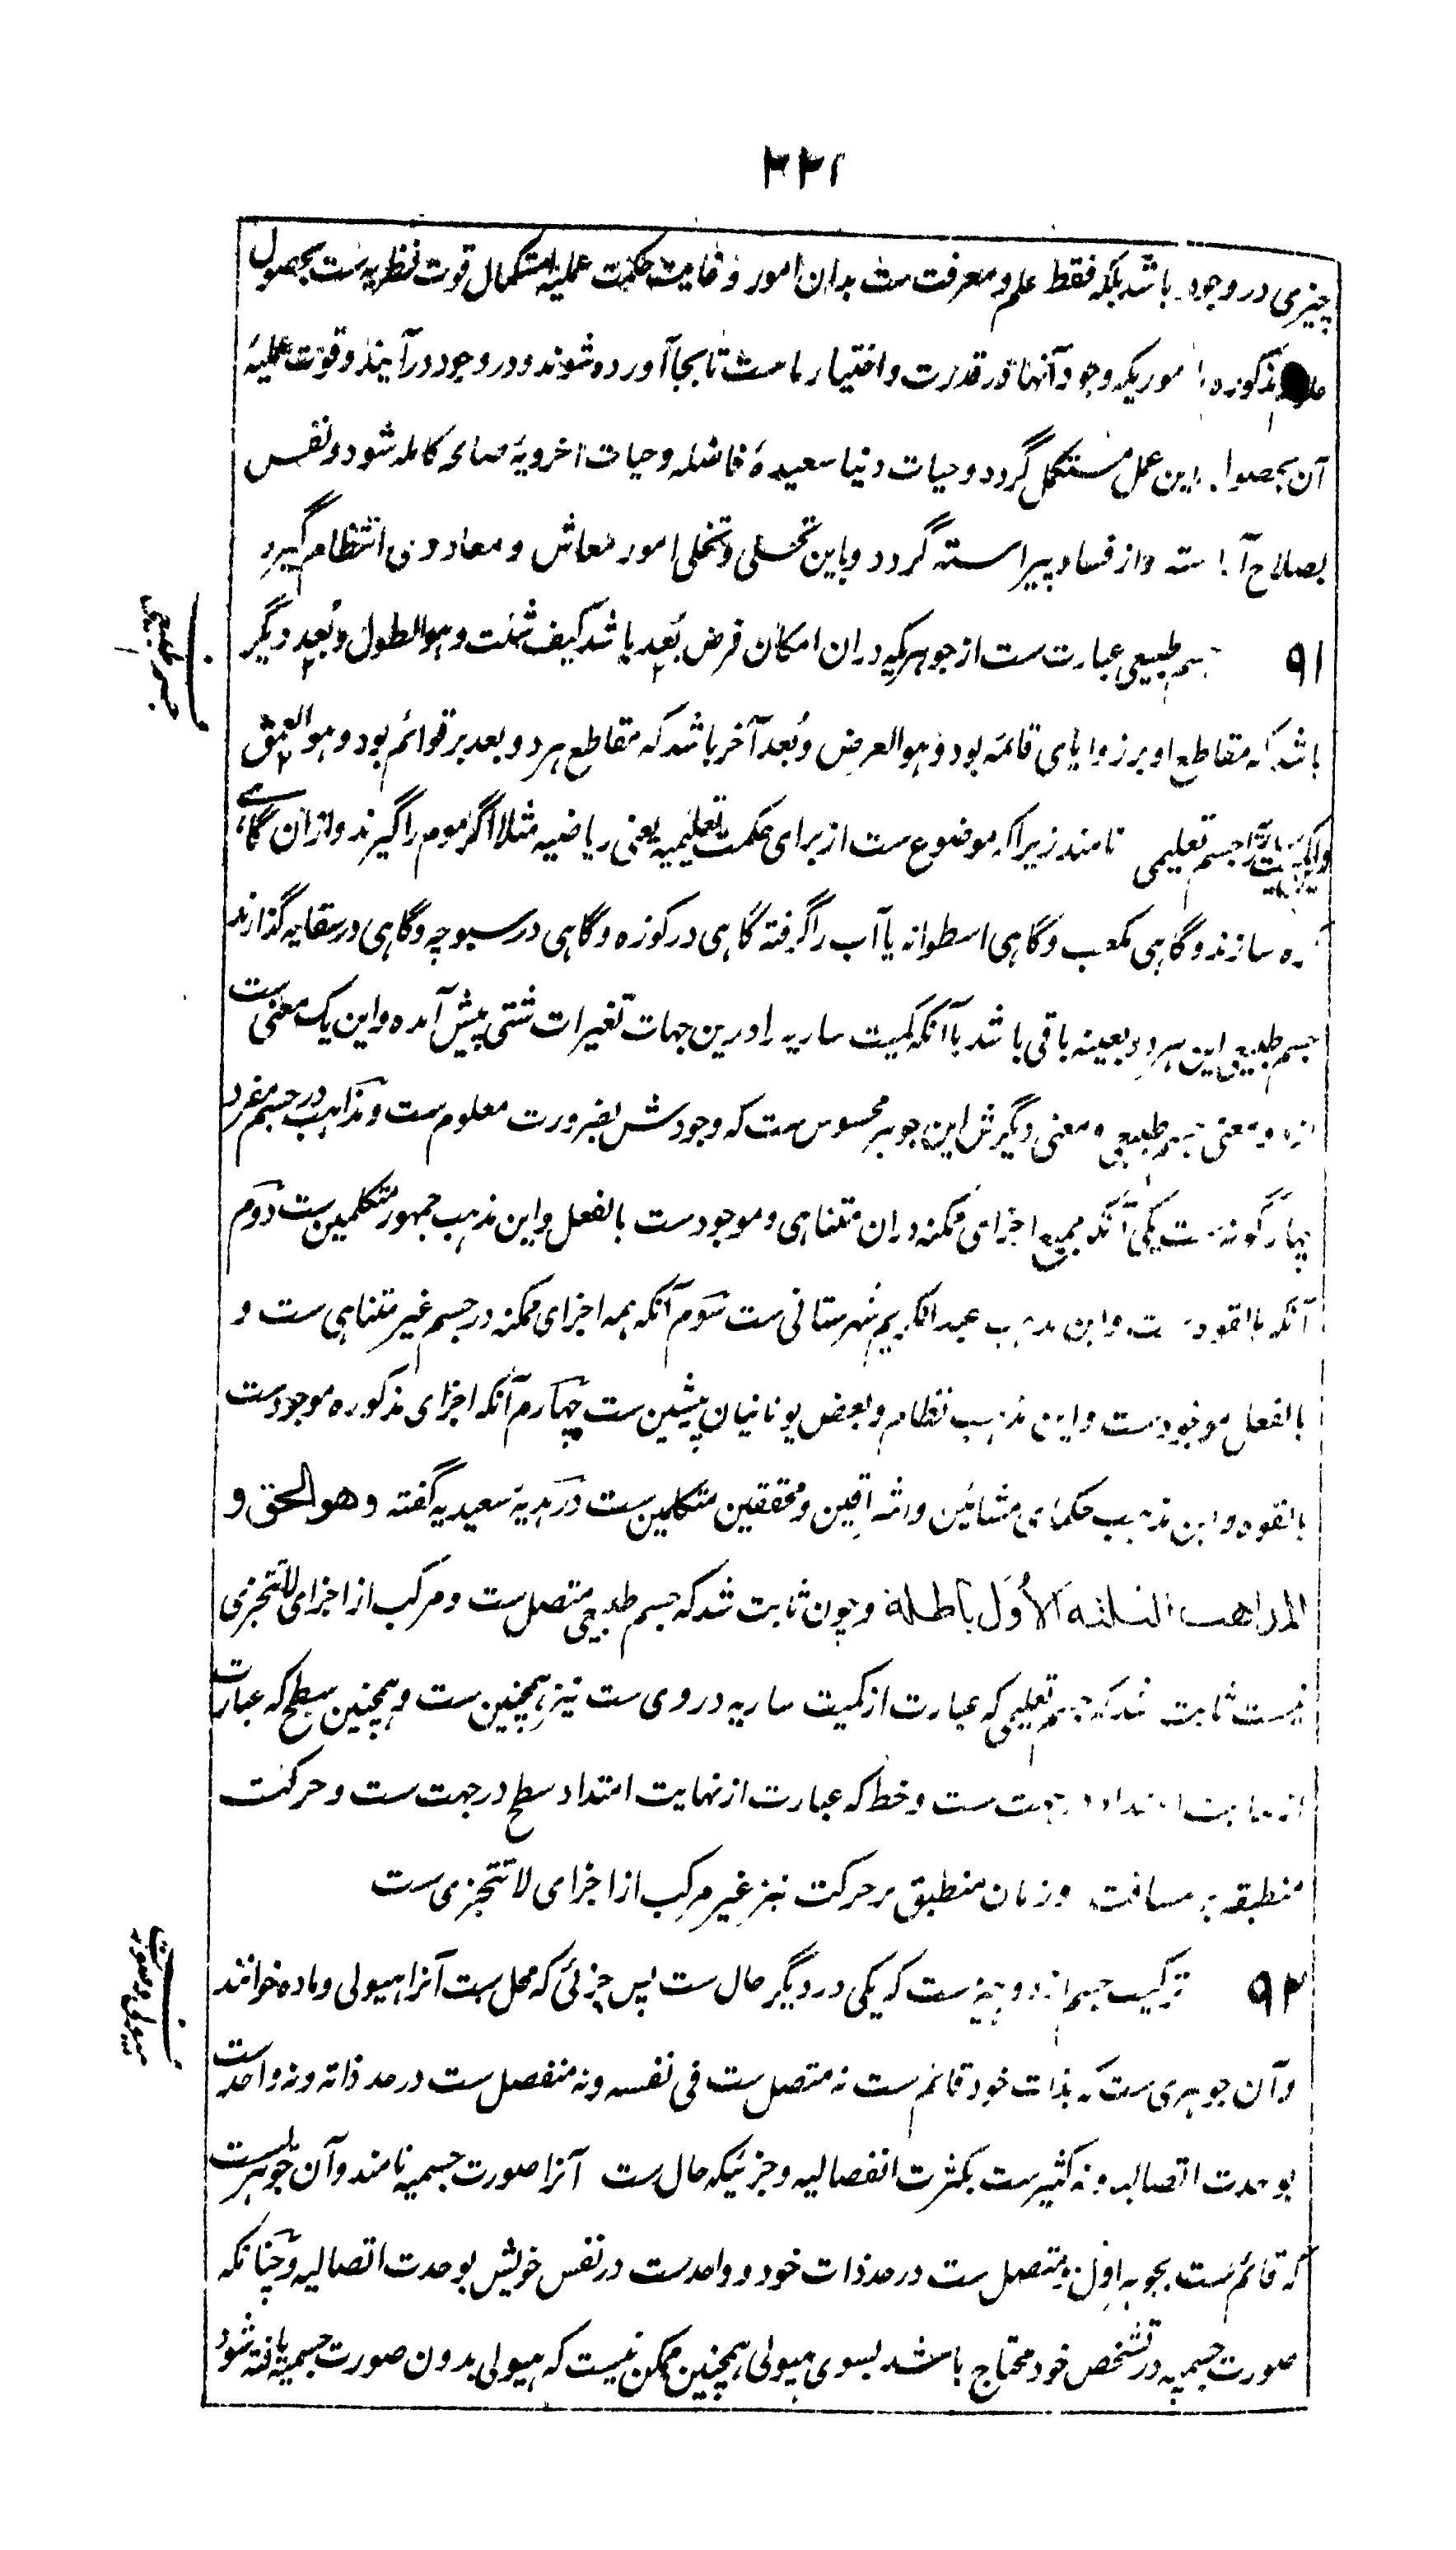 ۲۲۱
چیزی در وجود باشد بلکه فقط علم و معرفت ست بدان امور و غایت حکمت عملیه استکمال قوت نظریه ست بحصول
مذکوره امور یکه وجود آنها در قدرت و اختیار ماست تا بجا آورده شوند و در وجود درآیند و قوت عملیۀ
آن بحصول این عمل مستکمل گردد و حیات دنیا سعیدهٔ فاضله و حیات اخرویهٔ صالحه کامله شود و نفس
بصلاح آراسته و از فساد پیراسته گردد و باین تحلی و تخلی امور معاش و معاد وی انتظام گیرد
جسم طبیعی
۹۱ جسم طبیعی عبارت ست از جوهریکه دران امکان فرض بُعد باشد کیف شئت و هو الطول و بُعد دیگر
باشد که مقاطع او بر زوایای قائمه بود و هو العرض و بُعد آخر باشد که مقاطع هر دو بعد بر قوائم بود و هو العمق
جسم تعلیمی نامند زیراکه موضوع ست از برای حکمت تعلیمیه یعنی ریاضیه مثلا اگر موم را گیرند و ازان گاهے
کره سازند و گاهی مکعب و گاهی اسطوانه یا آب را گرفته گاهی در کوزه و گاهی در سبوچه و گاهی در سقایه گذارند
جسم طبیعی این هر دو بعینه باقی باشد با آنکه کمیت ساریه را درین جهات تغیرات شتی پیش آمده و این یک معنی ست
از دو معنی جسم طبیعی و معنی دیگرش این جوهر محسوس ست که وجودش بضرورت معلوم ست و مذاهب در جسم مفرد
چهار گونه ست یکی آنکه جمیع اجزای ممکنه دران متناهی و موجودست بالفعل و این مذهب جمهور متکلمین ست دوم
آنکه بالقوه ست و این مذهب عبد الکریم شهرستانی ست سوم آنکه همه اجزای ممکنه در جسم غیر متناهی ست و
بالفعل موجودست و این مذهب نظام و بعض یونانیان پیشین ست چهارم آنکه اجزای مذکوره موجودست
بالقوه و این مذهب حکمای مشائین و اشراقین و محققین متکلمین ست در هدیۀ سعیدیه گفته وهو الحق و
المذاهب الثلثه الأُوَل باطلة و چون ثابت شد که جسم طبیعی متصل ست و مرکب از اجزای لاتتجزی
نیست ثابت شد که جسم تعلیمی که عبارت از کمیت ساریه در وی ست نیز همچنین ست و همچنین سطح که عبارت
از نهایت امتداد در جهت ست و خط که عبارت از نهایت امتداد سطح در جهت ست و حرکت
منطبقه بر مسافت و زمان منطبق بر حرکت نیز غیر مرکب از اجزای لاتتجزی ست
هیولی و صورت
۹۲ ترکیب جسم از دو چیز ست که یکی در دیگر حال ست پس جزئی که محل ست آنرا هیولی و ماده خوانند
و آن جوهری ست که بذات خود قائم ست نه متصل ست فی نفسه و نه منفصل ست در حد ذاته و نه واحدست
بوحدت اتصالیه و نه کثیرست بکثرت انفصالیه و جزئیکه حال ست آنرا صورت جسمیه نامند و آن جوهریست
که قائم ست بجوهر اول و متصل ست در حد ذات خود و واحدست در نفس خویش بوحدت اتصالیه و چنانکه
صورت جسمیه در تشخص خود محتاج باشد بسوی هیولی همچنین ممکن نیست که هیولی بدون صورت جسمیه یافته شود